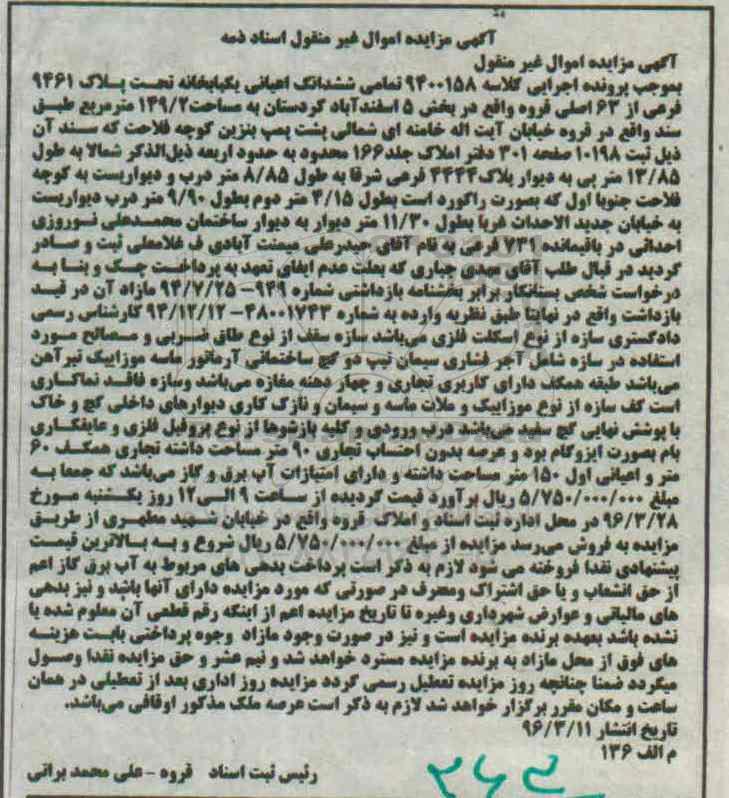 آگهی مزایده اموال غیر منقول اسناد ذمه
آگهی مزایده اموال غیر منقول
بموجب پرونده اجرایی کلاسه ۹۴۰۰۱۵۸ تمامی ششدانگ اعیانی یکبابخانه تحت پلاک ۹۴۶۱
فرعی از ۶۳ اصلی قروه واقع در بخش ۵ اسفندآباد کردستان به مساحت۱۴۹/۲ مترمربع طبق
سند واقع در قروه خیابان آیت اله خامنه ای شمالی پشت پمپ بنزین کوچه فلاحت که سند آن
ذیل ثبت ۱۰۱۹۸ صفحه ۳۰۱ دفتر املاک جلد۱۶۶ محدود به حدود اربعه ذیل‌الذکر شمالا به طول
۱۳/۸۵ متر پی به دیوار پلاک۴۴۴۴ فرعی شرقا به طول ۸/۸۵ متر درب و دیواریست به کوچه
فلاحت جنوبا اول که بصورت راکورد است بطول ۴/۱۵ متر دوم بطول ۹/۹۰ متر درب دیواریست
به خیابان جدید الاحداث غربا بطول ۱۱/۳۰ متر دیوار به دیوار ساختمان محمدعلی نوروزی
احداثی در باقیمانده ۷۳۱ فرعی به نام آقای حیدرعلی میمنت آبادی ف غلامعلی ثبت و صادر
گردید در قبال طلب آقای مهدی جباری که بعلت عدم ایفای تعهد به پرداخت چک و بنا به
درخواست شخص بستانکار برابر بخشنامه بازداشتی شماره ۹۴۹-۹۴/۷/۲۵ مازاد آن در قید
بازداشت واقع در نهایتا طبق نظریه وارده به شماره ۴۸۰۰۱۷۴۳-۹۴/۱۲/۱۲ کارشناس رسمی
دادگستری سازه از نوع اسکلت فلزی می‌باشد سازه سقف از نوع طاق ضربی و مصالح مورد
استفاده در سازه شامل آجر فشاری سیمان تیپ دو گچ ساختمانی آرماتور ماسه موزاییک تیرآهن
می‌باشد طبقه همکف دارای کاربری تجاری و چهار دهنه مغازه می‌باشد وسازه فاقد نماکاری
است کف سازه از نوع موزاییک و ملات ماسه و سیمان و نازک کاری دیوارهای داخلی گچ و خاک
با پوشش نهایی گچ سفید می‌باشد درب ورودی و کلیه بازشوها از نوع پروفیل فلزی و عایقکاری
بام بصورت ایزوگام بود و عرصه بدون احتساب تجاری ۹۰ متر مساحت داشته تجاری همکف ۶۰
متر و اعیانی اول ۱۵۰ متر مساحت داشته و دارای امتیازات آب برق و گاز می‌باشد که جمعا به
مبلغ ۵/۷۵۰/۰۰۰/۰۰۰ ریال برآورد قیمت گردیده از ساعت ۹ الی۱۲ روز یکشنبه مورخ
۹۶/۳/۲۸ در محل اداره ثبت اسناد و املاک قروه واقع در خیابان شهید مطهری از طریق
مزایده به فروش می‌رسد مزایده از مبلغ ۵/۷۵۰/۰۰۰/۰۰۰ ریال شروع و به بالاترین قیمت
پیشنهادی نقدا فروخته می شود لازم به ذکر است پرداخت بدهی های مربوط به آب برق گاز اعم
از حق انشعاب و یا حق اشتراک ومصرف در صورتی که مورد مزایده دارای آنها باشد و نیز بدهی
های مالیاتی و عوارض شهرداری وغیره تا تاریخ مزایده اعم از اینکه رقم قطعی آن معلوم شده یا
نشده باشد بعهده برنده مزایده است و نیز در صورت وجود مازاد وجوه پرداختی بابت هزینه
های فوق از محل مازاد به برنده مزایده مسترد خواهد شد و نیم عشر و حق مزایده نقدا وصول
میگردد ضمنا چنانچه روز مزایده تعطیل رسمی گردد مزایده روز اداری بعد از تعطیلی در همان
ساعت و مکان مقرر برگزار خواهد شد لازم به ذکر است عرصه ملک مذکور اوقافی می‌باشد.
تاریخ انتشار ۹۶/۳/۱۱
م الف ۱۳۶
رئیس ثبت اسناد قروه - علی محمد براتی